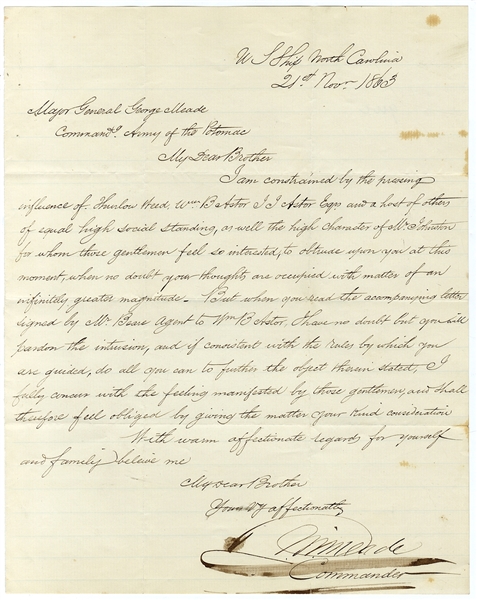 U S Ship North Carolina
21st Novr 1863
Major General George Meade
Commandg. Army of the Potomac
My Dear Brother
I am constrained by the pressing
influence of Thurlow Weed, Wm B Astor J J Astor Eqrs and a host of others
of equal high social standing, as well the high character of Mr Johnston
for whom those gentlemen feel so interested, to obtrude upon you at this
moment, when no doubt your thoughts are occupied with matter of an
infinitely greater magnitude - But when you read the accompanying letter
signed by Mr. Agent to Wm B Astor, I have no doubt but you will
pardon the intrusion, and if consistent with the rules by which you
are guided, do all you can to further the object therein stated, I
fully concur with the feeling manifested by those gentlemen, and shall
therefore feel obliged by giving the matter your kind consideration
With warm affectionate regards for yourself
and family believe me
My Dear Brother
Yours vy affectionately
Meade
Commander